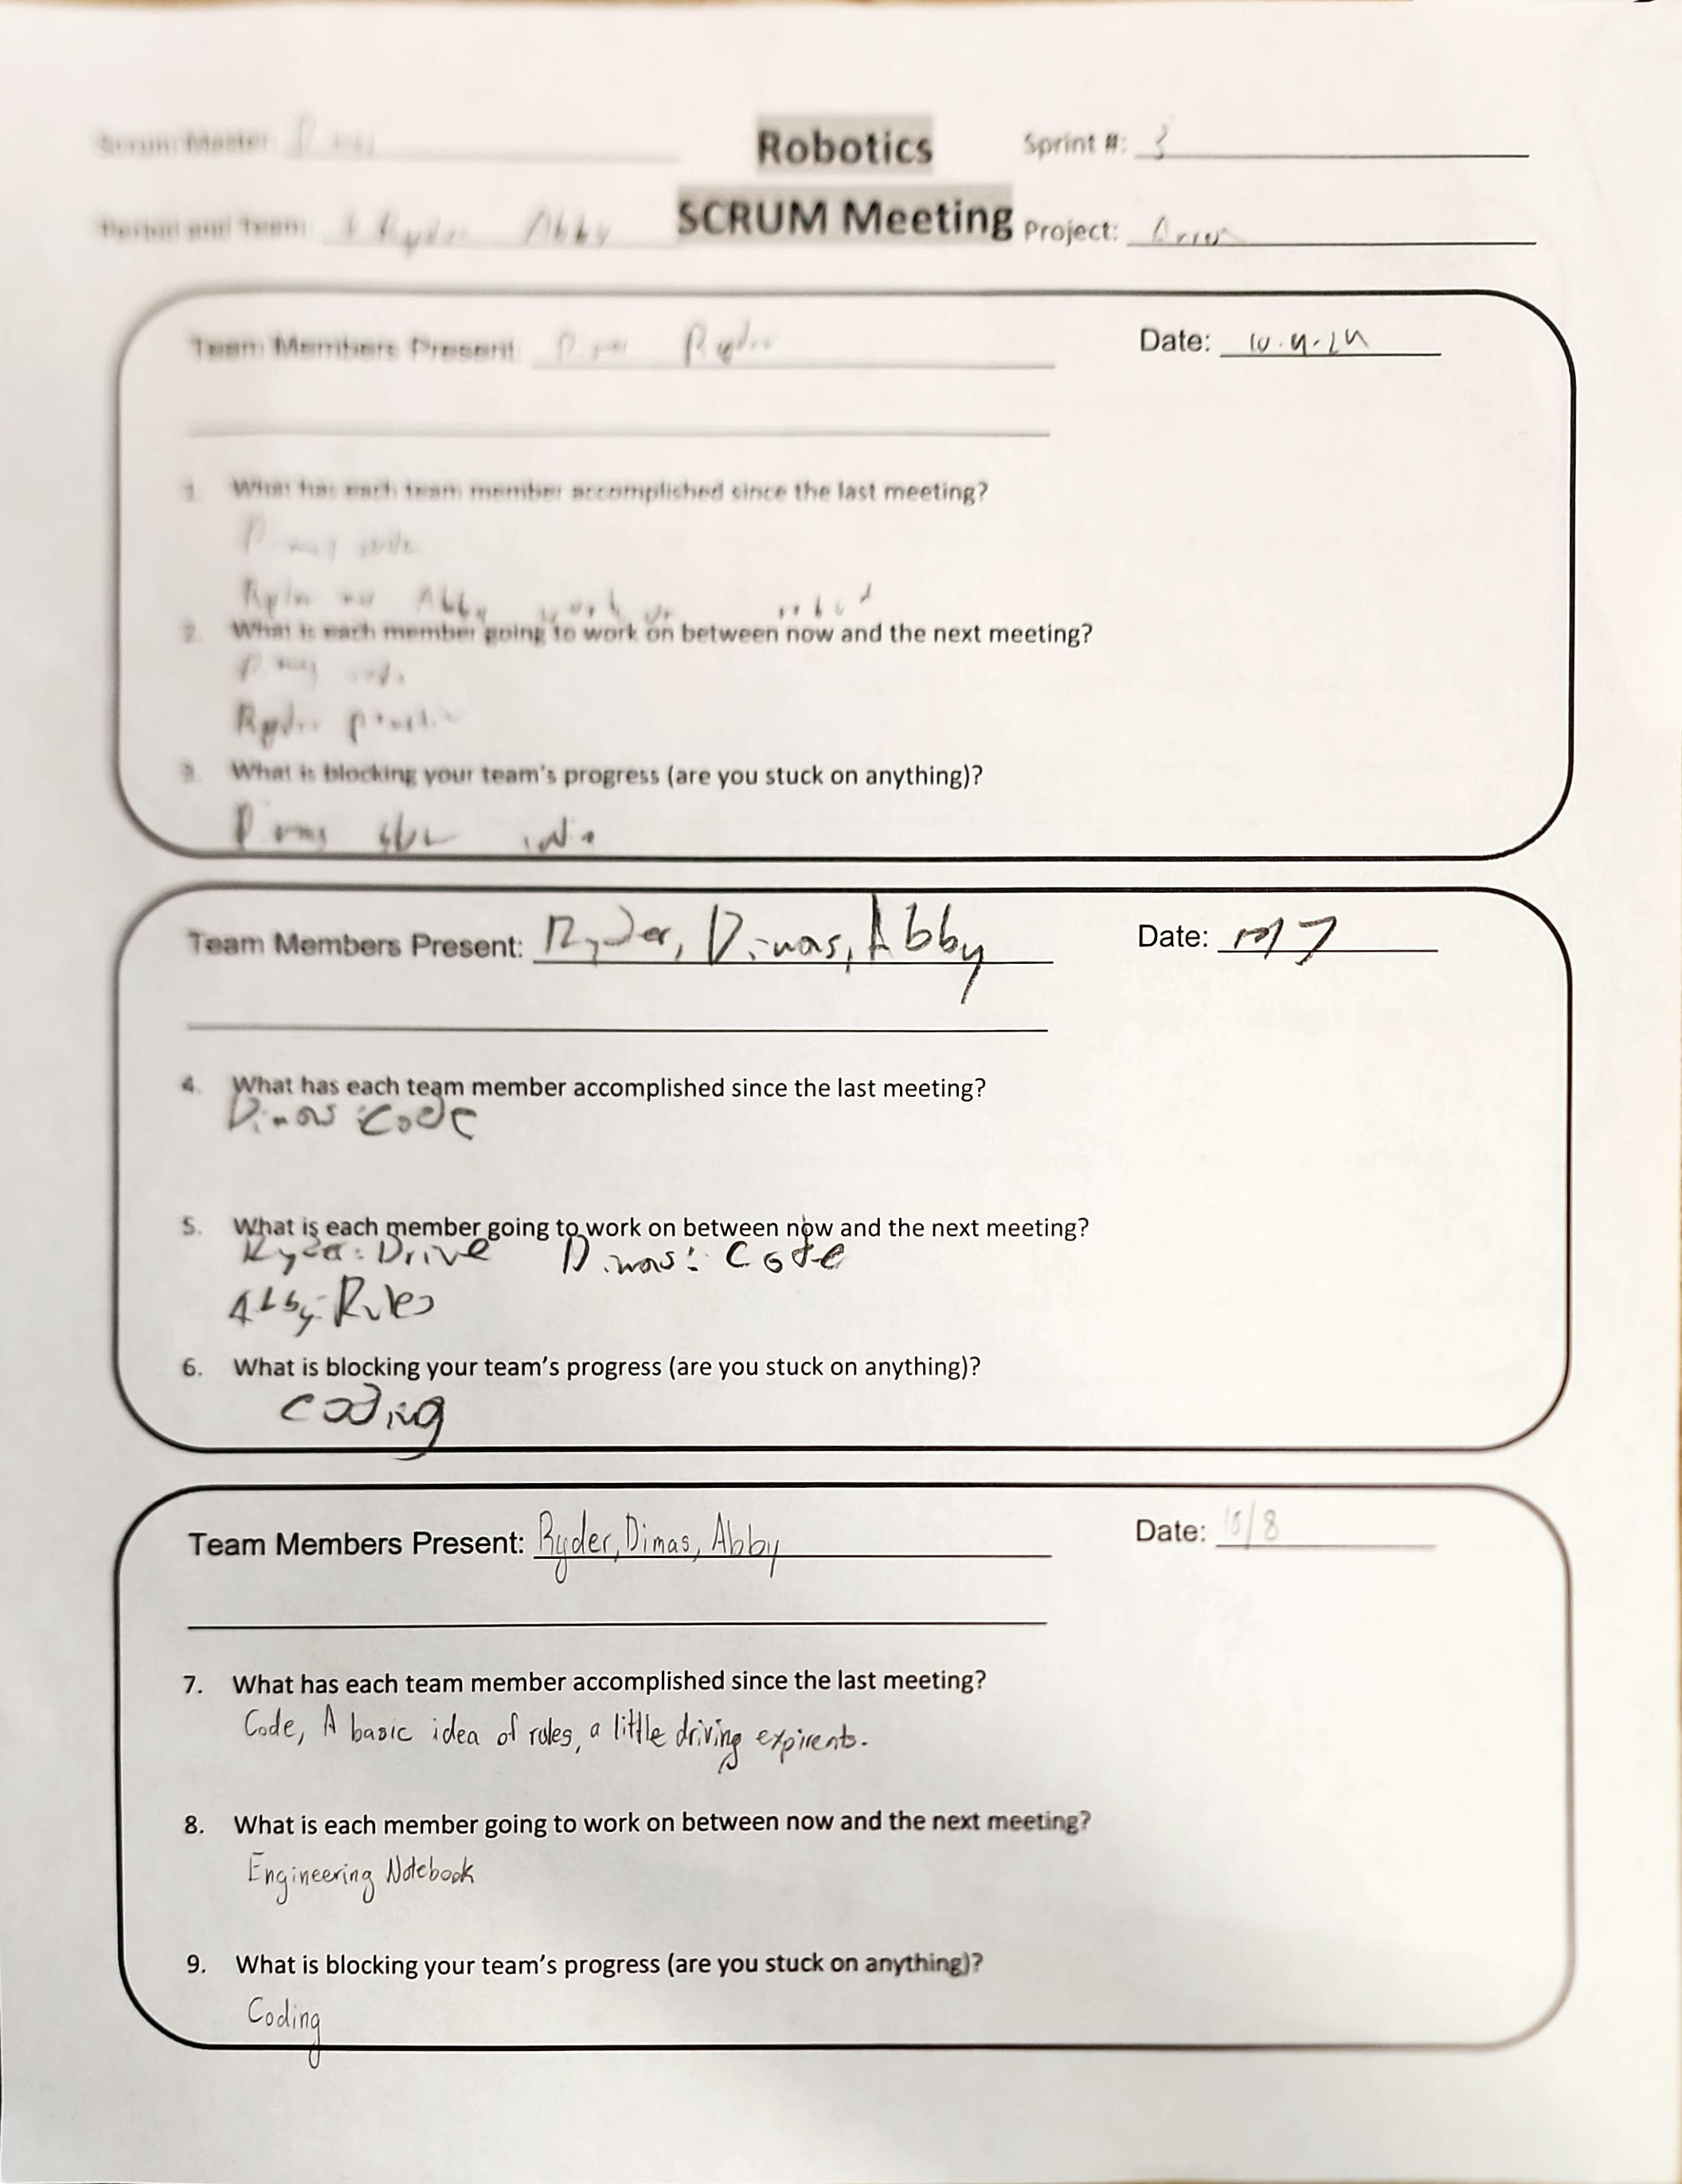 Scrum Master: Robotics Sprint #: 3
Period and Team: Ryder Abby SCRUM Meeting Project:
Team Members Present: Ryder Date: 10.4.24
1. What has each team member accomplished since the last meeting?
code
Ryder Abby work on robot
2. What is each member going to work on between now and the next meeting?
Dimas code
Ryder
3. What is blocking your team's progress (are you stuck on anything)?
Dimas
Team Members Present: Ryder, Dimas, Abby Date: 10/7
4. What has each team member accomplished since the last meeting?
Dimas: Code
5. What is each member going to work on between now and the next meeting?
Ryder: Drive Dimas: Code
Abby: Rules
6. What is blocking your team's progress (are you stuck on anything)?
coding
Team Members Present: Ryder, Dimas, Abby Date: 10/8
7. What has each team member accomplished since the last meeting?
Code, A basic idea of rules, a little driving expirents.
8. What is each member going to work on between now and the next meeting?
Engineering Notebook
9. What is blocking your team's progress (are you stuck on anything)?
Coding